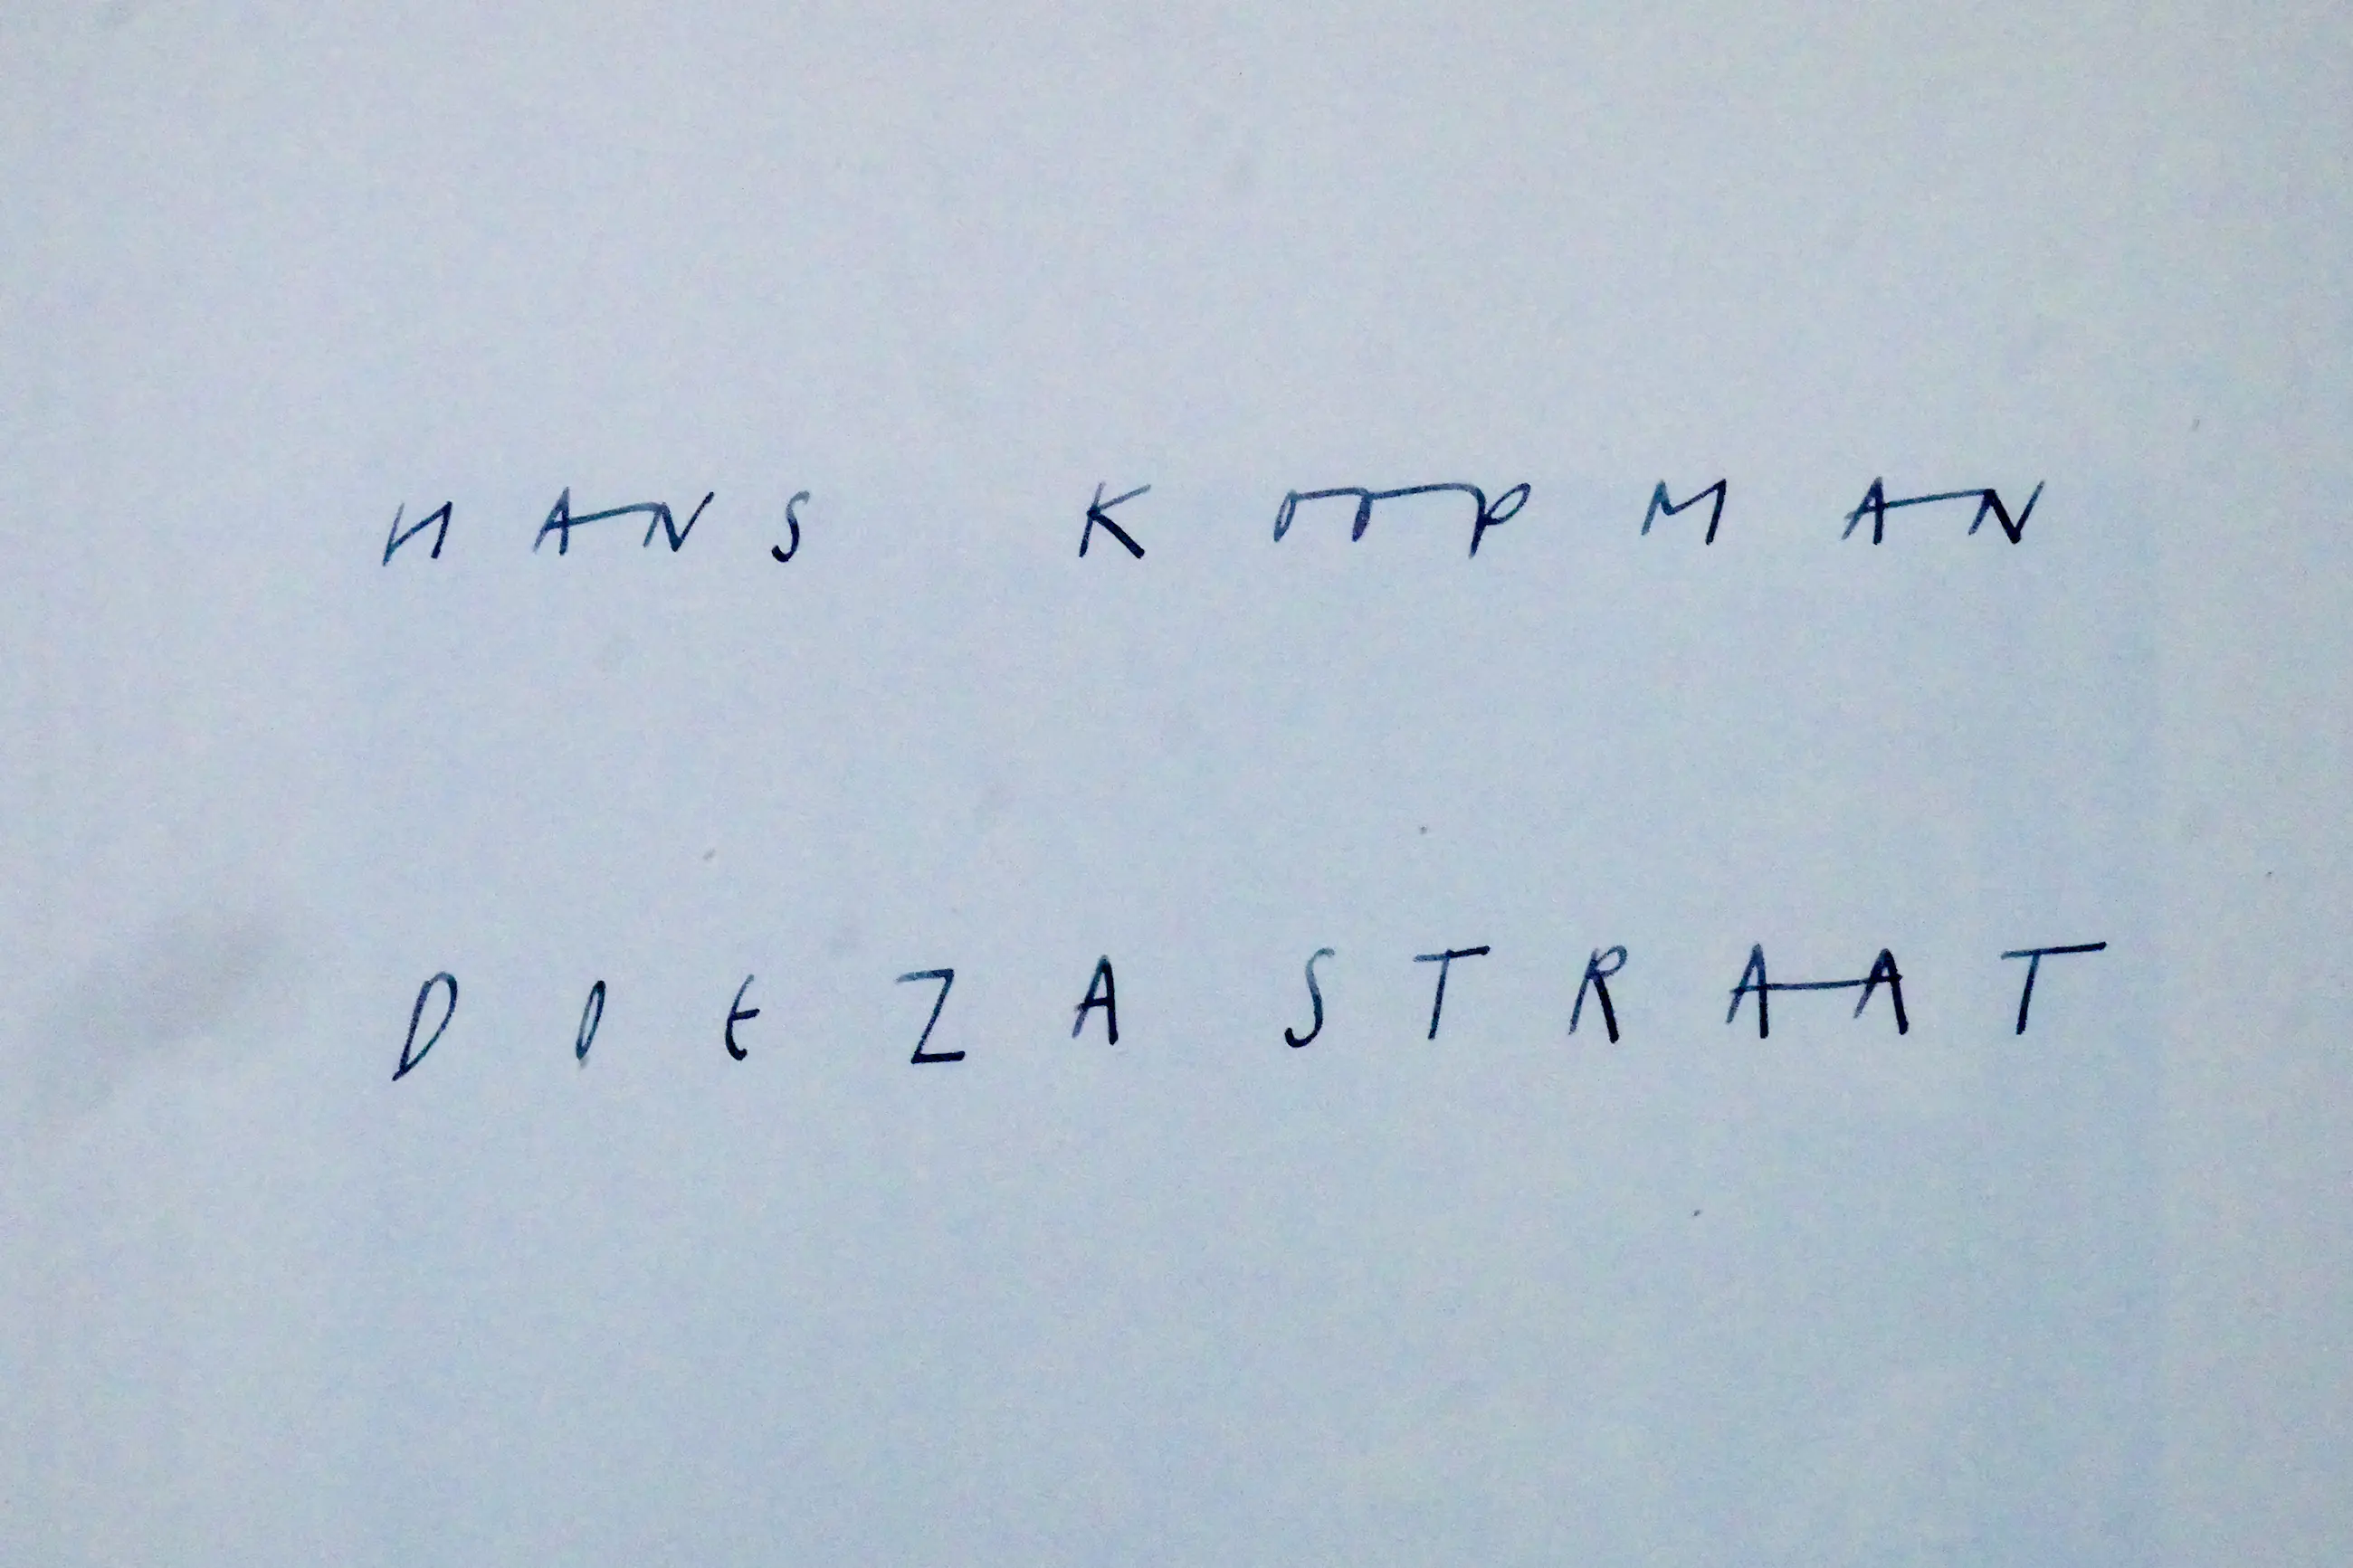 HANS KOOPMAN
DOEZASTRAAT